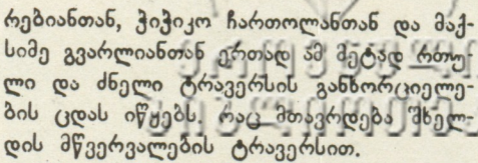 რებიანთან, ჭიჭიკო ჩართოლანთან და მაქ-
სიმე გვარლიანთან ერთად ამ მეტად რთუ-
ლი და ძნელი ტრავერსის განხორციელე-
ბის ცდას იწყებს. რაც მთავრდება შხელ-
დის მწვერვალების ტრავერსით.